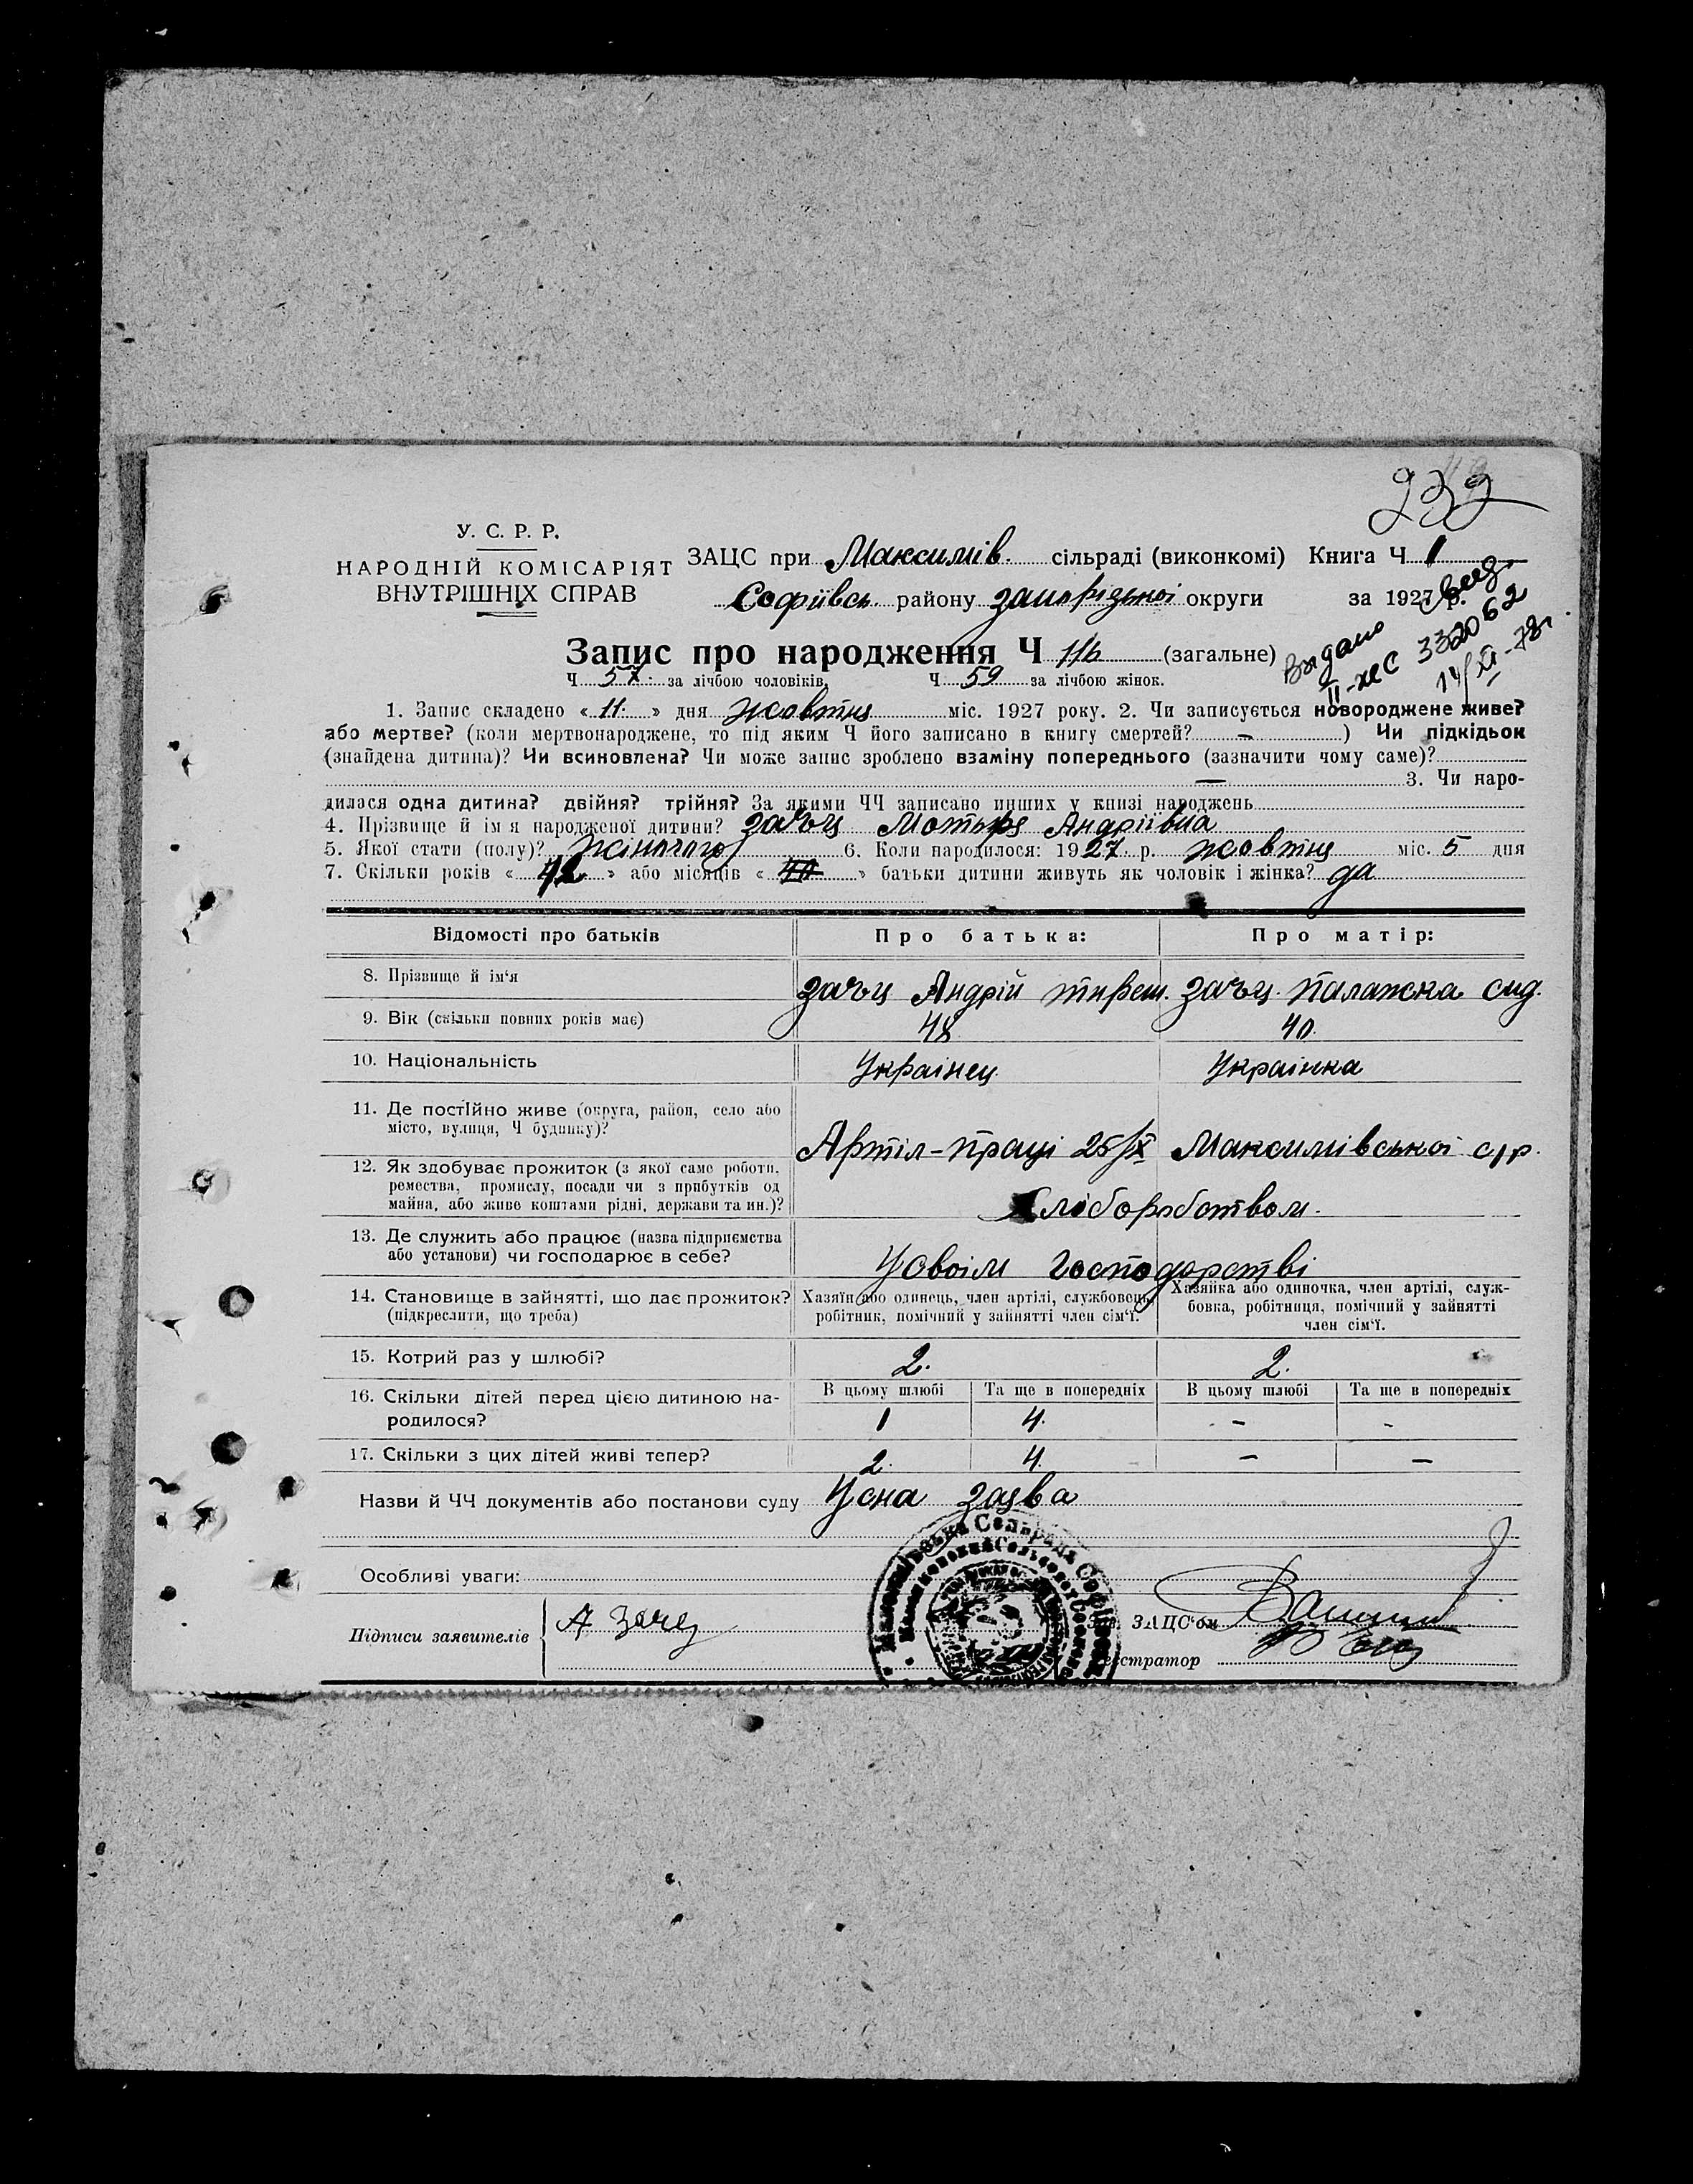 232
У. С. Р. Р.
НАРОДНІЙ КОМІСАРІЯТ
ВНУТРІШНІХ СПРАВ
ЗАЦС при Максимів. сільраді (виконкомі) Книга Ч 1
Софіївськ. району запорізької округи за 1927 р.
Выдано свид.
II-ЖС 332062
14/XI-78г.
Запис про народження Ч 116 (загальне)
Ч 57. за лічбою чоловіків. Ч 59 за лічбою жінок.
1. Запис складено « 11. » дня жовтня міс. 1927 року. 2. Чи записується новороджене живе?
або мертве? (коли мертвонароджене, то під яким Ч його записано в книгу смертей? — ) Чи підкідьок
(знайдена дитина)? Чи всиновлена? Чи може запис зроблено взаміну попереднього (зазначити чому саме)?
— 3. Чи наро-
дилася одна дитина? двійня? трійня? За якими ЧЧ записано инших у книзі народжень
4. Прізвище й ім я народженої дитини? Заєць Мотьря Андріївна
5. Якої стати (полу)? Жіночого 6. Коли народилося: 1927 р. жовтня міс. 5 дня
7. Скільки років « 12 » або місяців « » батьки дитини живуть як чоловік і жінка? да
Відомості про батьків Про батька: Про матір:
8. Прізвище й ім'я Андрій Палажка Сид.
9. Вік (скільки повних років має) 48 40.
10. Національність Українец Українка
11. Де постійно живе (округа, район, село або
місто, вулиця, Ч будинку)?
Артіл-праці 25/X Максимівської с/р.
12. Як здобуває прожиток (з якої саме роботи,
ремества, промислу, посади чи з прибутків од
майна, або живе коштами рідні, держави та ин.)?
Хліборобством.
13. Де служить або працює (назва підприємства
або установи) чи господарює в себе?
Усвоїм господарстві
14. Становище в зайнятті, що дає прожиток?
(підкреслити, що треба)
Хазяїн або одинець, член артілі, службовець,
робітник, помічний у зайнятті член сім'ї.
Хазяйка або одиночка, член артілі, служ-
бовка, робітниця, помічний у зайнятті
член сім'ї.
15. Котрий раз у шлюбі? 2. 2.
16. Скільки дітей перед цією дитиною на-
родилося?
В цьому шлюбі Та ще в попередніх В цьому шлюбі Та ще в попередніх
1 4. - -
17. Скільки з цих дітей живі тепер? 2. 4. — —
Назви й ЧЧ документів або постанови суду Усна заява
Особливі уваги:
Підписи заявителів А Заєц
ЗАЦС'ом
єстратор